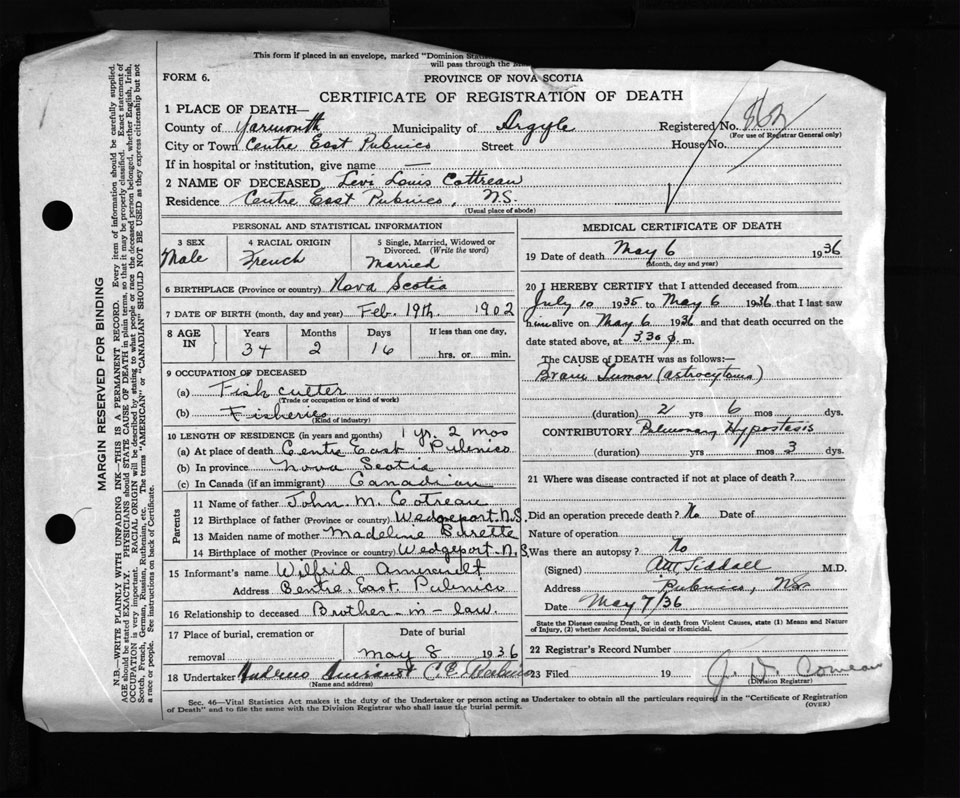 This form if placed in an envelope, marked "Dominion
will pass through the
FORM 6.
PROVINCE OF NOVA SCOTIA
CERTIFICATE OF REGISTRATION OF DEATH
1 PLACE OF DEATH—
County of Yarmouth Municipality of Argyle Registered No. 862
(For use of Registrar General only)
City or Town Centre East Pubnico Street House No.
If in hospital or institution, give name —
2 NAME OF DECEASED Levi Louis Cottreau
Residence Centre East Pubnico, N.S.
(Usual place of abode)
PERSONAL AND STATISTICAL INFORMATION
3 SEX 4 RACIAL ORIGIN 5 Single, Married, Widowed or
Divorced. (Write the word)
Male French Married
6 BIRTHPLACE (Province or country) Nova Scotia
7 DATE OF BIRTH (month, day and year) Feb. 19th. 1902
8 AGE IN Years Months Days If less than one day,
34 2 16 hrs. or min.
9 OCCUPATION OF DECEASED
(a) Fish cutter
(Trade or occupation or kind of work)
(b) Fisheries
(Kind of industry)
10 LENGTH OF RESIDENCE (in years and months) 1 yr. 2 mos
(a) At place of death Centre East Pubnico
(b) In province Nova Scotia
(c) In Canada (if an immigrant) Canadian
Parents
11 Name of father John. M. Cotreau
12 Birthplace of father (Province or country) Wedgeport. N.S.
13 Maiden name of mother Madeline Burette
14 Birthplace of mother (Province or country) Wedgeport. N.S.
15 Informant's name Wilfrid Amirault
Address Centre East Pubnico
16 Relationship to deceased Brother-in-law.
17 Place of burial, cremation or Date of burial
removal May 8 1936
18 Undertaker
(Name and address)
MEDICAL CERTIFICATE OF DEATH
19 Date of death May 6 1936
(Month, day and year)
20 I HEREBY CERTIFY that I attended deceased from
July 10 1935 to May 6 1936 that I last saw
him alive on May 6 1936 and that death occurred on
date stated above, at 3.30 p. m.
The CAUSE of DEATH was as follows:—
Brain Tumor (astrocytoma)
(duration) 2 yrs 6 mos dys.
CONTRIBUTORY Pulmonary Hypostasis
(duration) yrs mos 3 dys.
21 Where was disease contracted if not at place of death?
Did an operation precede death? No Date of
Nature of operation
Was there an autopsy? No
(Signed) Siddall M.D.
Address Pubnico, NS
Date May 7/36
State the Disease causing Death, or in death from Violent Causes, state (1) Means and Nature
of Injury, (2) whether Accidental, Suicidal or Homicidal.
22 Registrar's Record Number
23 Filed 19 J. D. Comeau
(Division Registrar)
Sec. 46—Vital Statistics Act makes it the duty of the Undertaker or person acting as Undertaker to obtain all the particulars required in the "Certificate of Registration
of Death" and to file the same with the Division Registrar who shall issue the burial permit.
(OVER)
MARGIN RESERVED FOR BINDING
N.B.—WRITE PLAINLY WITH UNFADING INK—THIS IS A PERMANENT RECORD. Every item of information should be carefully supplied.
AGE should be stated EXACTLY. PHYSICIANS should STATE CAUSE OF DEATH in plain terms, so that it may be properly classified. Exact statement of
OCCUPATION is very important. RACIAL ORIGIN will be described by stating to what people or race the deceased person belonged, whether English, Irish,
Scotch, French, German, Russian, Ruthenian, etc. The terms "AMERICAN" or "CANADIAN" SHOULD NOT BE USED as they express citizenship but not
a race or people. See instructions on back of Certificate.